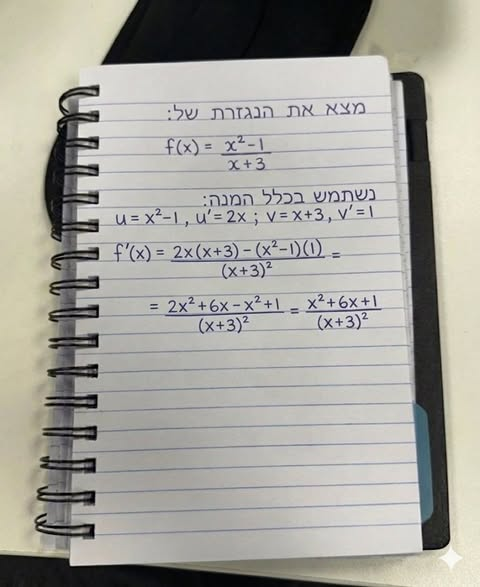 מצא את הנגזרת של:
f(x) = (x²-1)/(x+3)
נשתמש בכלל המנה:
u = x²-1, u' = 2x ; v = x+3, v' = 1
f'(x) = (2x(x+3) - (x²-1)(1))/((x+3)²) =
= (2x²+6x-x²+1)/((x+3)²) = (x²+6x+1)/((x+3)²)